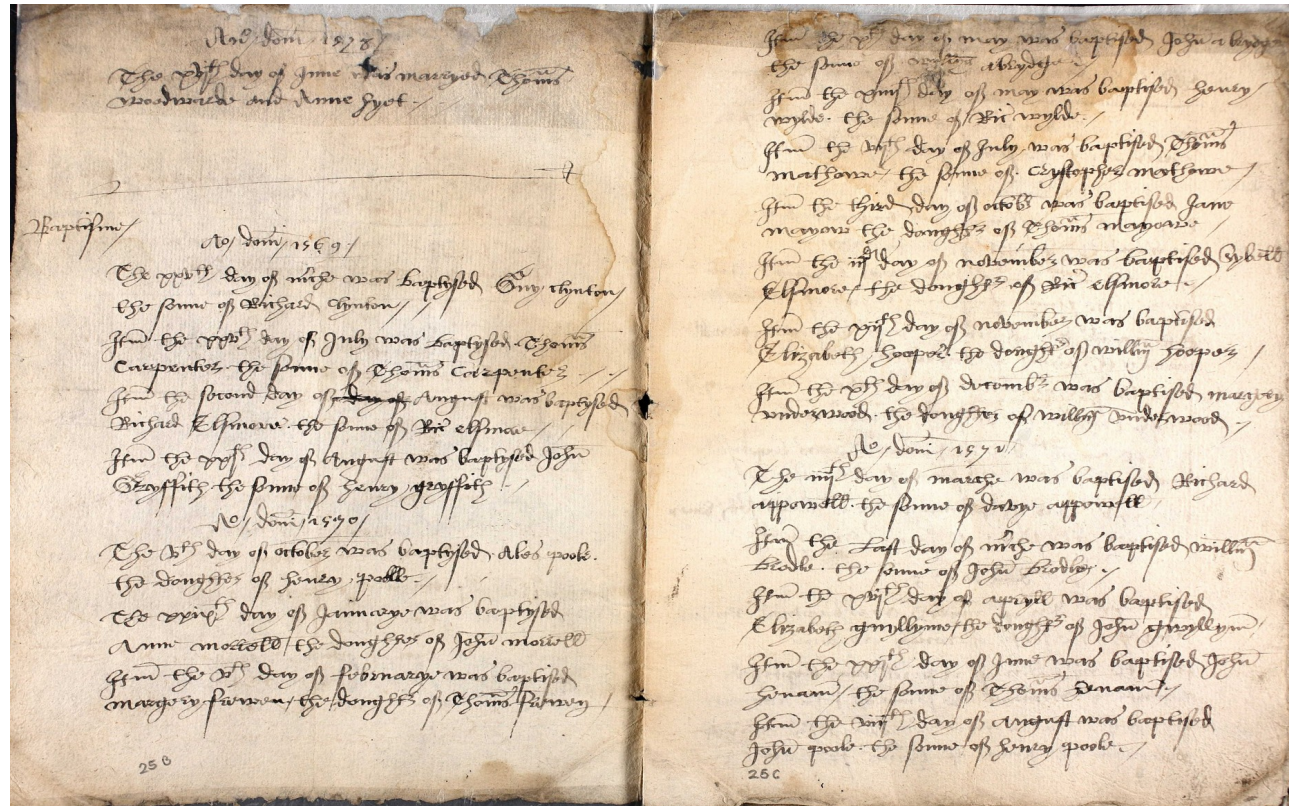 Ano dom 1578
The xvth day of June was marryed Thoms
woodwarde and Anne hyet
Baptisme
Ao dom 1569
The xxvth day of mche was baptysed Guy clynton
the sonne of Richard clynton
Itm the xxvth day of July was baptysed Thoms
Carpenter the sonne of Thoms Carpenter
Itm the second day of day of August was baptysed
Richard Elsmore the sonne of Ric elsmore
Itm the day of August was baptysed John
Gryffith the sonne of henry gryffith
Ao dom 1570
The vth day of october was baptysed Ales poole
the doughter of henry poole
The day of Januarye was baptysed
Anne morrell the doughter of John morrell
Itm the vth day of februarye was baptised
margery frewen the doughter of Thoms frewen
25 B
Itm the xth day of may was baptised John abrydge
the sonne of abrydge
Itm the day of may was baptised henry
wylde the sonne of Ric wylde
Itm the day of July was baptised Thoms
mathowe the sonne of Crystopher mathowe
Itm the third day of octobr was baptised Jane
mayow the doughter of Thoms mayowe
Itm the day of november was baptised Sybell
Elsmore the doughter of Ric elsmore
Itm the day of november was baptised
Elizabeth hooper the doughtr of willm hooper
Itm the xth day of decembr was baptised margery
underwood the doughter of willm underwood
Ao dom 1571
The day of marche was baptised Richard
appowell the sonne of davye appowell
Itm the Last day of mche was baptised willm
the sonne of John
Itm the day of apryll was baptised
Elizabeth gwyllyme the doughtr of John gwyllym
Itm the day of June was baptised John
henam the sonne of Thoms henam
Itm the day of August was baptised
John poole the sonne of henry poole
25 C